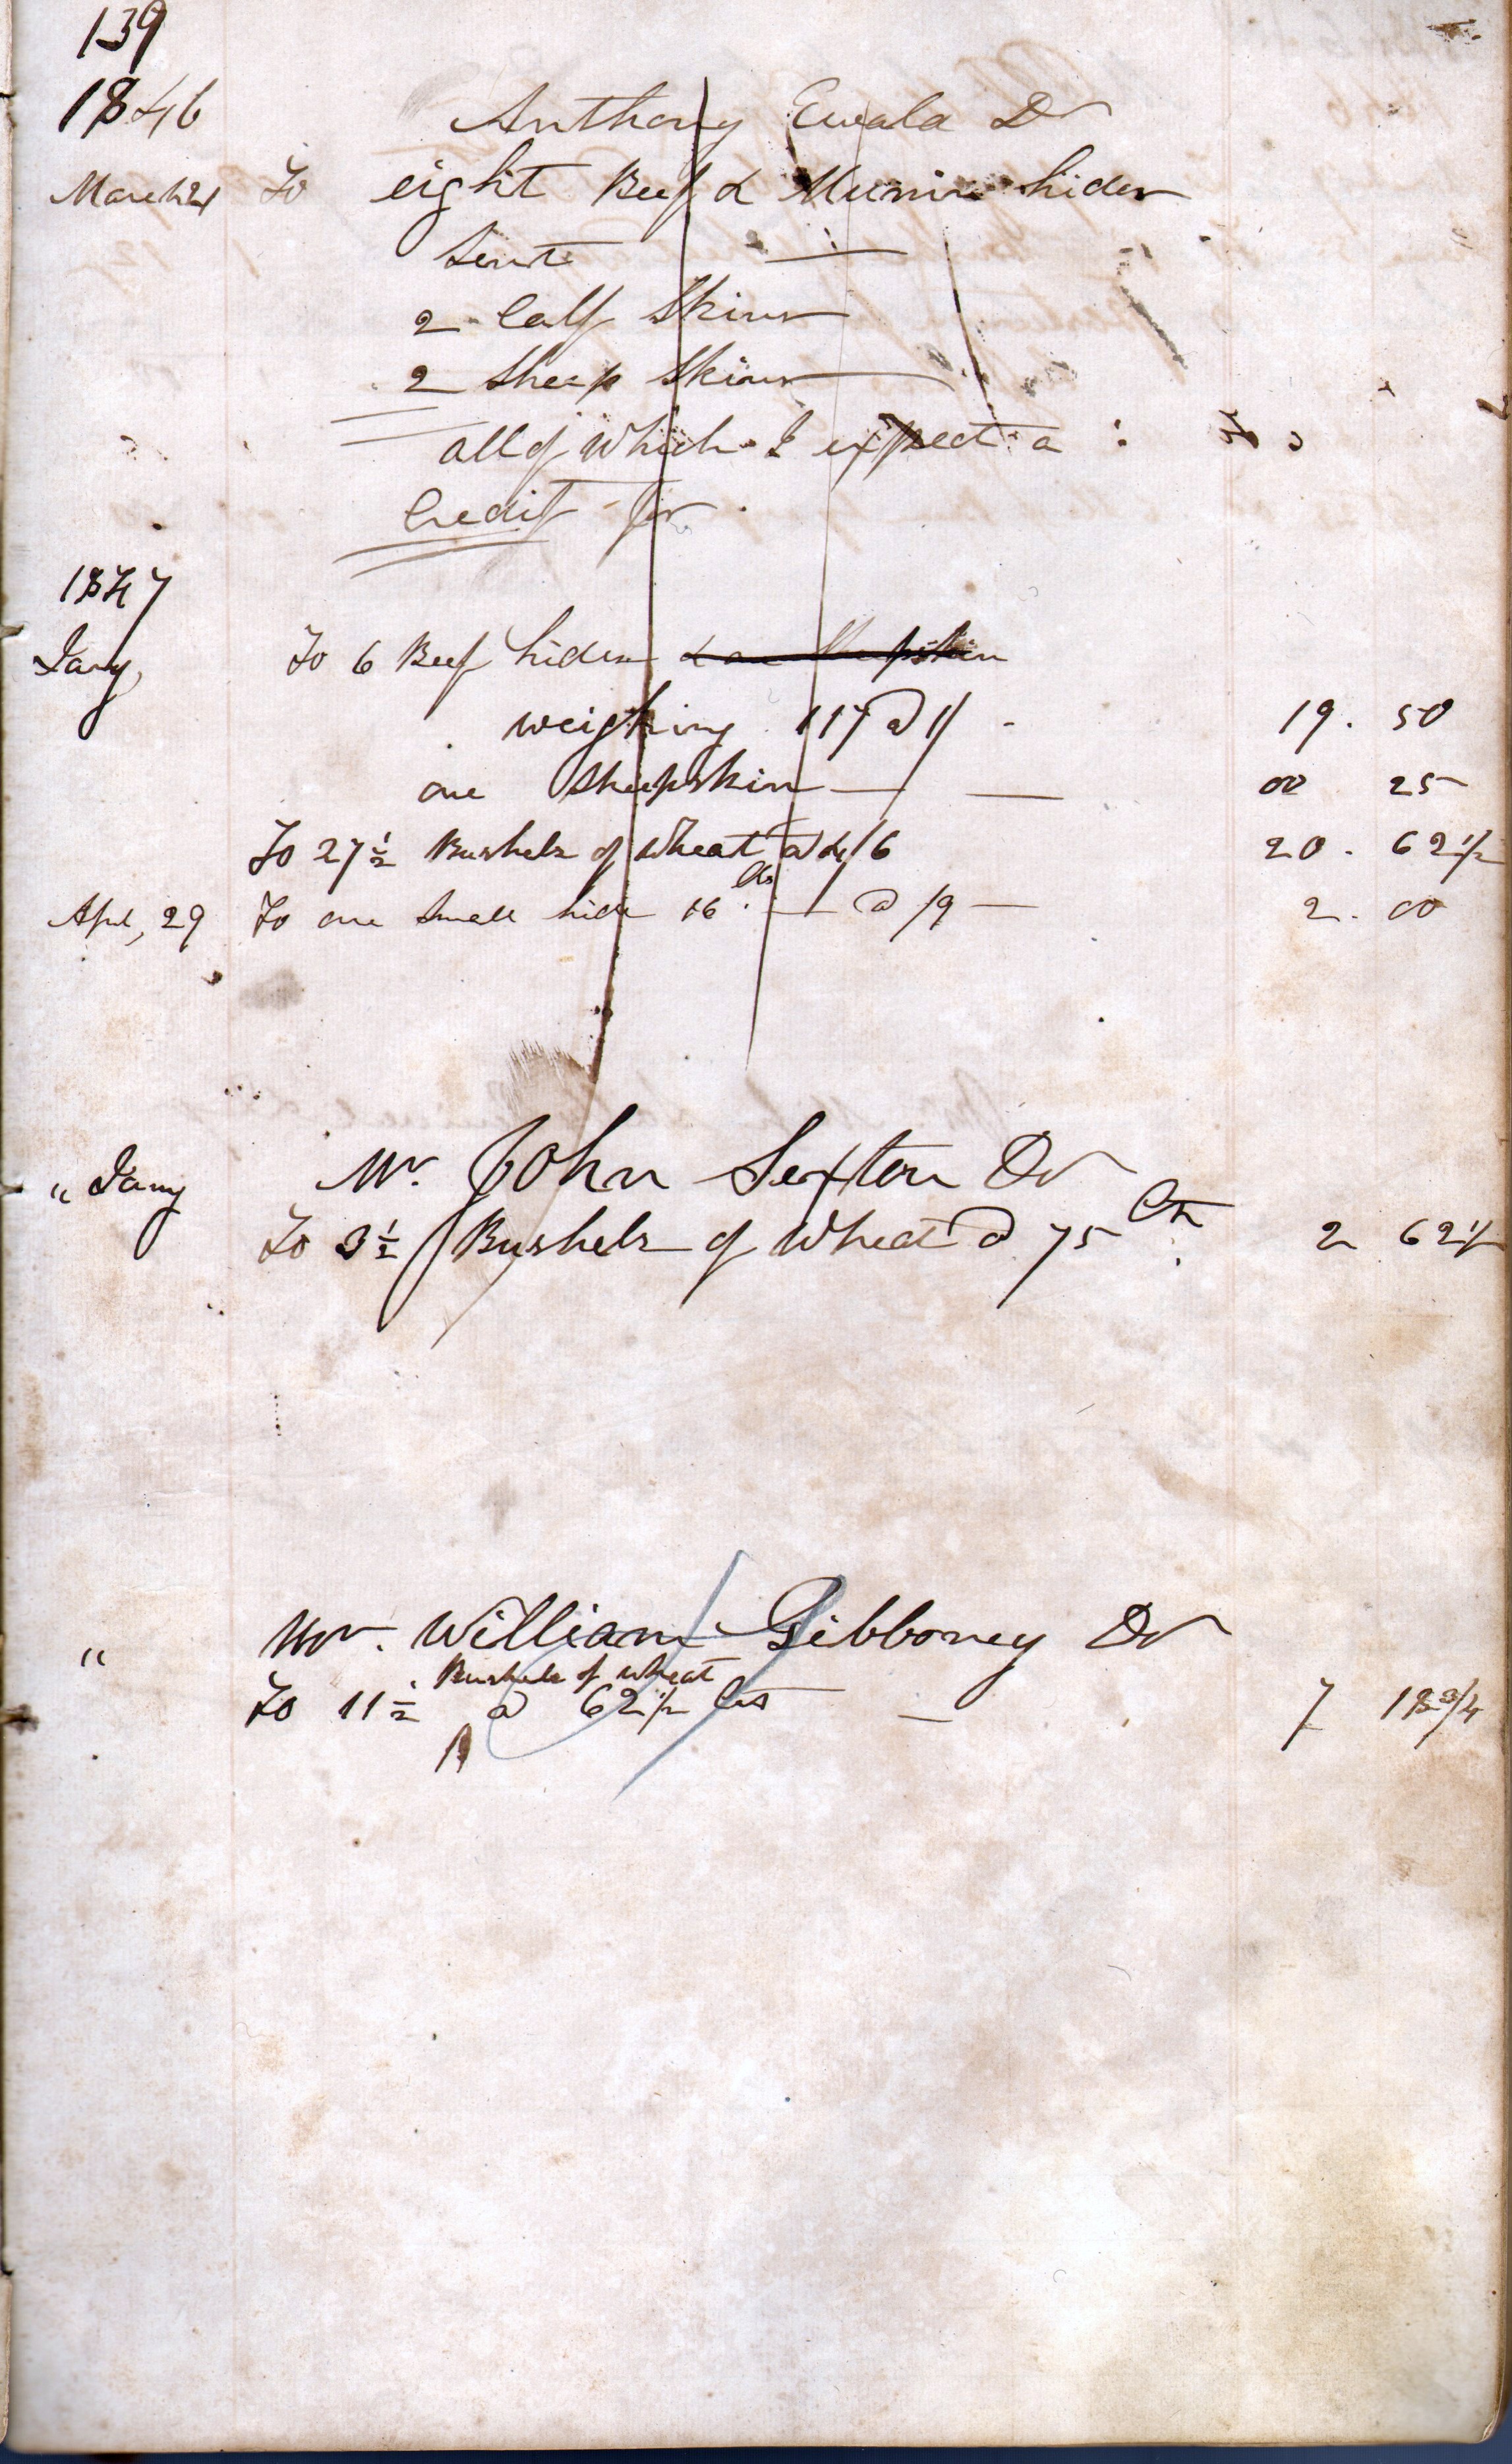 139
1846
Anthony Ewald Dr
March 21 To eight Beef & hides
Sent
2 Calf Skins
2 Sheep Skins
all of which I expect a
Credit for
1847
Jany, To 6 Beef hides & one Sheepskin
weighing 117 @ 1/ - 19. 50
one Sheepskin — — 00 25
To 27 1/2 Bushels of Wheat @ 4/6 20. 62 1/2
Apl, 29 To one Small hide 16 lbs — @ /9 — 2. 00
" Jany Mr. John Sexton Dr
To 3 1/2 Bushels of Wheat @ 75 Cts 2 62 1/2
" Mr. William Gibboney Dr
Bushels of wheat
To 11 1/2 @ 62 1/2 Cts — 7 18 3/4